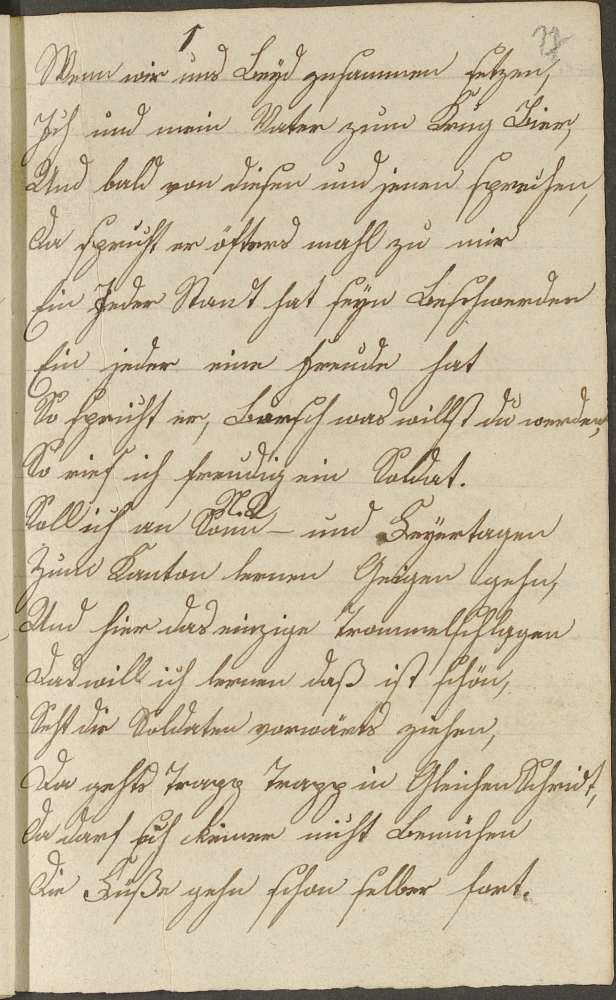 1
Wenn wir uns Beyd zusammen setzen,
Ich und mein Vater zum Krug Bier,
Und bald von diesen und jenen sprechen,
Da spricht er öfters mahl zu mir
Ein Jeder Stant hat seyn Beschwerden
Ein jeder eine Freude hat
So spricht er, Bursch was willst du werden,
So rief ich freudig ein Soldat.
N. 2
Soll ich an Sonn- und Feyertagen
Zum Kanton lernen Geigen gehn,
Und hier das einzige Trommelschlagen
Das will ich lernen daß ist schön,
Seht die Soldaten vorwärts ziehen,
Da gehts Trapp Trapp in Gleichen Schridt,
Da darf sich keiner nicht bemühen
Die Füße gehn schon selber fort.